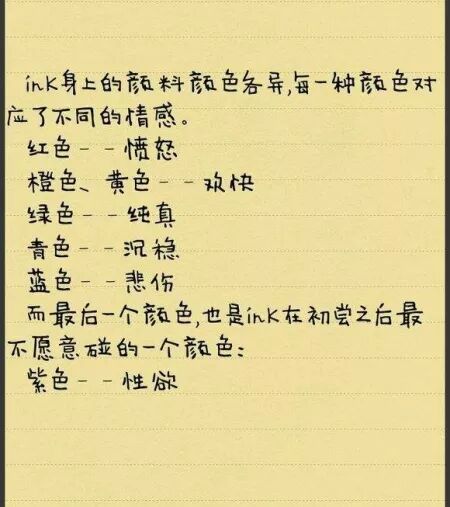 inK身上的颜料颜色各异,每一种颜色对
应了不同的情感。
红色--愤怒
橙色、黄色--欢快
绿色--纯真
青色--沉稳
蓝色--悲伤
而最后一个颜色,也是inK在初尝之后最
不愿意碰的一个颜色:
紫色--性欲